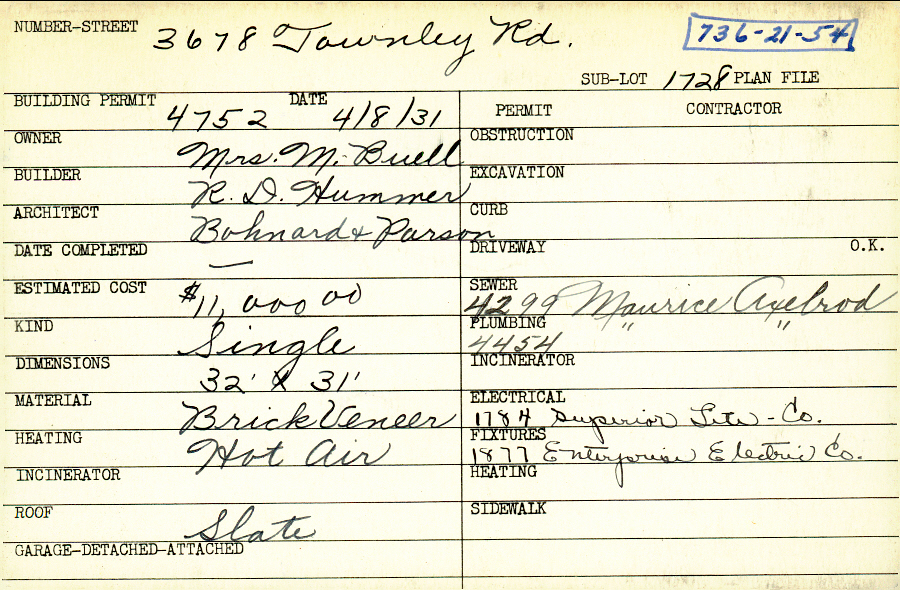 NUMBER-STREET 3678 Townley Rd. 736-21-54
SUB-LOT 1728 PLAN FILE
BUILDING PERMIT 4752 DATE 4/8/31
OWNER Mrs. M. Buell
BUILDER R. D. Hummer
ARCHITECT Bohnard & Parson
DATE COMPLETED —
ESTIMATED COST $11,000 00
KIND Single
DIMENSIONS 32' X 31'
MATERIAL Brick Veneer
HEATING Hot Air
INCINERATOR
ROOF Slate
GARAGE-DETACHED-ATTACHED
PERMIT CONTRACTOR
OBSTRUCTION
EXCAVATION
CURB
DRIVEWAY O.K.
SEWER 4299 Maurice Axelrod
PLUMBING 4454 " "
INCINERATOR
ELECTRICAL 1784 Superior Lite - Co.
FIXTURES 1877 Enterprise Electric Co.
HEATING
SIDEWALK